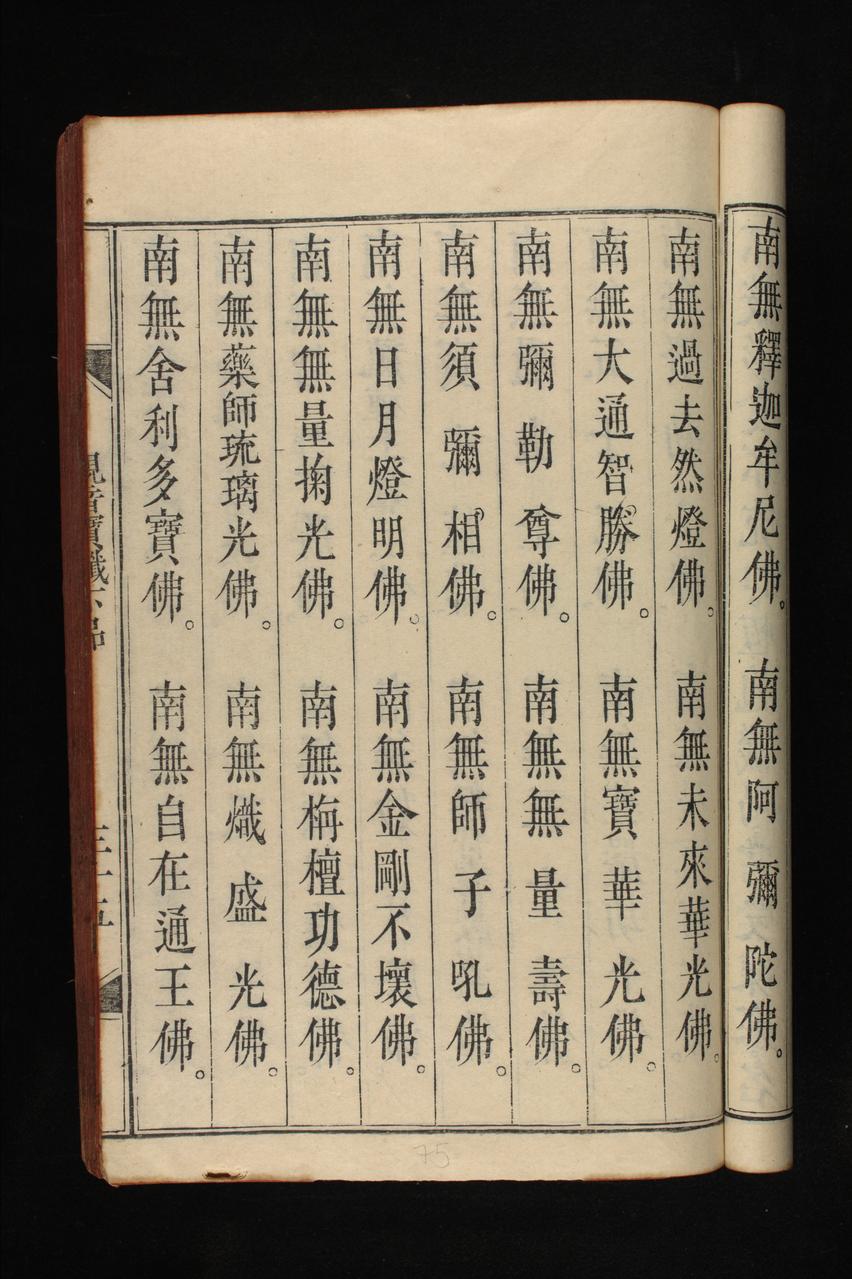 南無釋迦牟尼佛。 南無阿彌陀佛。
南無過去然燈佛。 南無未來華光佛。
南無大通智勝佛。 南無寶華光佛。
南無彌勒尊佛。 南無無量壽佛。
南無須彌相佛。 南無師子吼佛。
南無日月燈明佛。 南無金剛不壞佛。
南無無量掬光佛。 南無栴檀功德佛。
南無藥師琉璃光佛。 南無熾盛光佛。
南無舍利多寶佛。 南無自在通王佛。
觀音寶懺下品 三十五
75